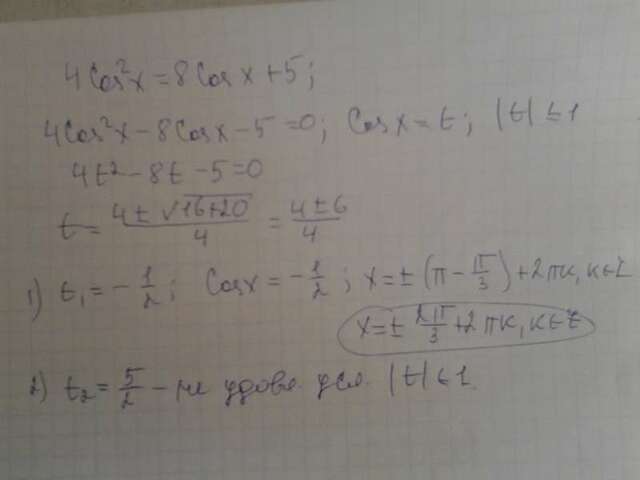 4Cos²x = 8Cos x + 5;
4Cos²x - 8Cosx - 5 = 0; Cosx = t; |t| ≤ 1
4t² - 8t - 5 = 0
t = (4 ± √(16+20))/4 = (4 ± 6)/4
1) t₁ = -1/2; Cosx = -1/2; x = ± (π - π/3) + 2πk, k∈Z
x = ± 2π/3 + 2πk, k∈Z
2) t₂ = 5/2 - не удовл. усл. |t| ≤ 1.